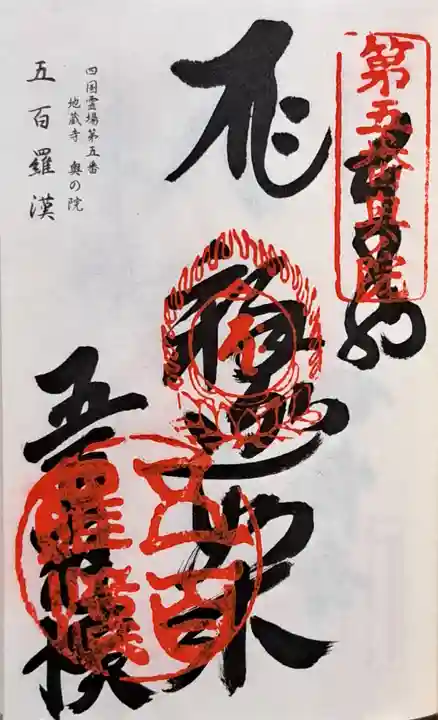 第五番奥之院
奉納
釋迦如来
五百羅漢
五百羅漢
四国霊場第五番
地蔵寺 奥の院
五百羅漢